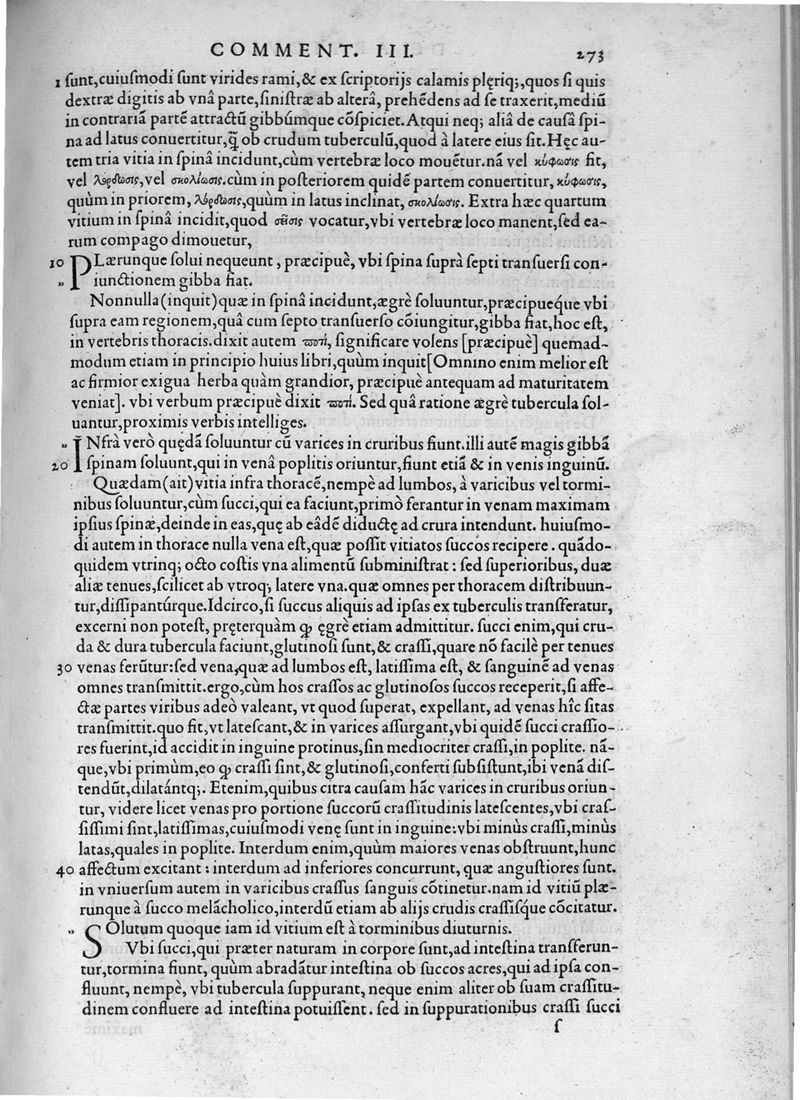 COMMENT. III. 273
1 ſunt,cuiuſmodi ſunt virides rami,& ex ſcriptorijs calamis plęriq;,quos ſi quis
dextræ digitis ab vnâ parte,ſiniſtræ ab alterâ, prehēdens ad ſe traxerit,mediū
in contrariā partē attractū gibbúmque cōſpiciet.Atqui neq; aliâ de cauſâ ſpi-
na ad latus conuertitur,q̃ ob crudum tuberculū,quod à latere eius ſit.Hęc au-
tem tria vitia in ſpinâ incidunt,cùm vertebræ loco mouētur.nā vel κύφωσις fit,
vel λόρδωσις,vel σκολίωσις.cùm in poſteriorem quidē partem conuertitur, κύφωσις,
quùm in priorem, λόρδωσις,quùm in latus inclinat, σκολίωσις. Extra hæc quartum
vitium in ſpinâ incidit,quod σεῖσις vocatur,vbi vertebræ loco manent,ſed ea-
rum compago dimouetur,
10 PLærunque ſolui nequeunt, præcipuè, vbi ſpina ſuprà ſepti tranſuerſi con-
„ iunctionem gibba fiat.
Nonnulla(inquit)quæ in ſpinâ incidunt,ægrè ſoluuntur,præcipueque vbi
ſupra eam regionem,quâ cum ſepto tranſuerſo cōiungitur,gibba fiat,hoc eſt,
in vertebris thoracis.dixit autem ποτί, ſignificare volens [præcipuè] quemad-
modum etiam in principio huius libri,quùm inquit[Omnino enim melior eſt
ac firmior exigua herba quàm grandior, præcipuè antequam ad maturitatem
veniat]. vbi verbum præcipuè dixit ποτί. Sed quâ ratione ægrè tubercula ſol-
uantur,proximis verbis intelliges.
„ INfrà verò quędā ſoluuntur cū varices in cruribus fiunt.illi autē magis gibbā
20 ſpinam ſoluunt,qui in venâ poplitis oriuntur,fiunt etiā & in venis inguinū.
Quædam(ait)vitia infra thoracē,nempè ad lumbos, à varicibus vel tormi-
nibus ſoluuntur,cùm ſucci, qui ea faciunt,primò ferantur in venam maximam
ipſius ſpinæ,deinde in eas,quę ab eâdē diductę ad crura intendunt. huiuſmo-
di autem in thorace nulla vena eſt,quæ poſſit vitiatos ſuccos recipere. quādo-
quidem vtrinq; octo coſtis vna alimentū ſubminiſtrat : ſed ſuperioribus, duæ
aliæ tenues,ſcilicet ab vtroq; latere vna.quæ omnes per thoracem diſtribuun-
tur,diſſipantúrque.Idcirco,ſi ſuccus aliquis ad ipſas ex tuberculis tranſferatur,
excerni non poteſt, pręterquàm ꝙ ęgrè etiam admittitur. ſucci enim,qui cru-
da & dura tubercula faciunt,glutinoſi ſunt,& craſſi,quare nō facilè per tenues
30 venas ferūtur:ſed vena,quæ ad lumbos eſt, latiſſima eſt, & ſanguinē ad venas
omnes tranſmittit.ergo,cùm hos craſſos ac glutinoſos ſuccos receperit,ſi affe-
ctæ partes viribus adeò valeant, vt quod ſuperat, expellant, ad venas hîc ſitas
tranſmittit.quo fit,vt lateſcant,& in varices aſſurgant,vbi quidē ſucci craſſio-
res fuerint,id accidit in inguine protinus,ſin mediocriter craſſi,in poplite. nā-
que,vbi primùm,eo ꝙ craſſi ſint,& glutinoſi,conferti ſubſiſtunt,ibi venā diſ-
tendūt,dilatántq;. Etenim,quibus citra cauſam hāc varices in cruribus oriun-
tur, videre licet venas pro portione ſuccorū craſſitudinis lateſcentes,vbi craſ-
ſiſſimi ſint,latiſſimas,cuiuſmodi venę ſunt in inguine:vbi minùs craſſi,minùs
latas,quales in poplite. Interdum enim,quùm maiores venas obſtruunt,hunc
40 affectum excitant : interdum ad inferiores concurrunt, quæ anguſtiores ſunt.
in vniuerſum autem in varicibus craſſus ſanguis cōtinetur.nam id vitiū plæ-
runque à ſucco melācholico,interdū etiam ab alijs crudis craſſiſque cōcitatur.
„ SOlutum quoque iam id vitium eſt à torminibus diuturnis.
Vbi ſucci,qui præter naturam in corpore ſunt,ad inteſtina tranſferun-
tur,tormina fiunt, quùm abradātur inteſtina ob ſuccos acres,qui ad ipſa con-
fluunt, nempè, vbi tubercula ſuppurant, neque enim aliter ob ſuam craſſitu-
dinem confluere ad inteſtina potuiſſent. ſed in ſuppurationibus craſſi ſucci
ſ